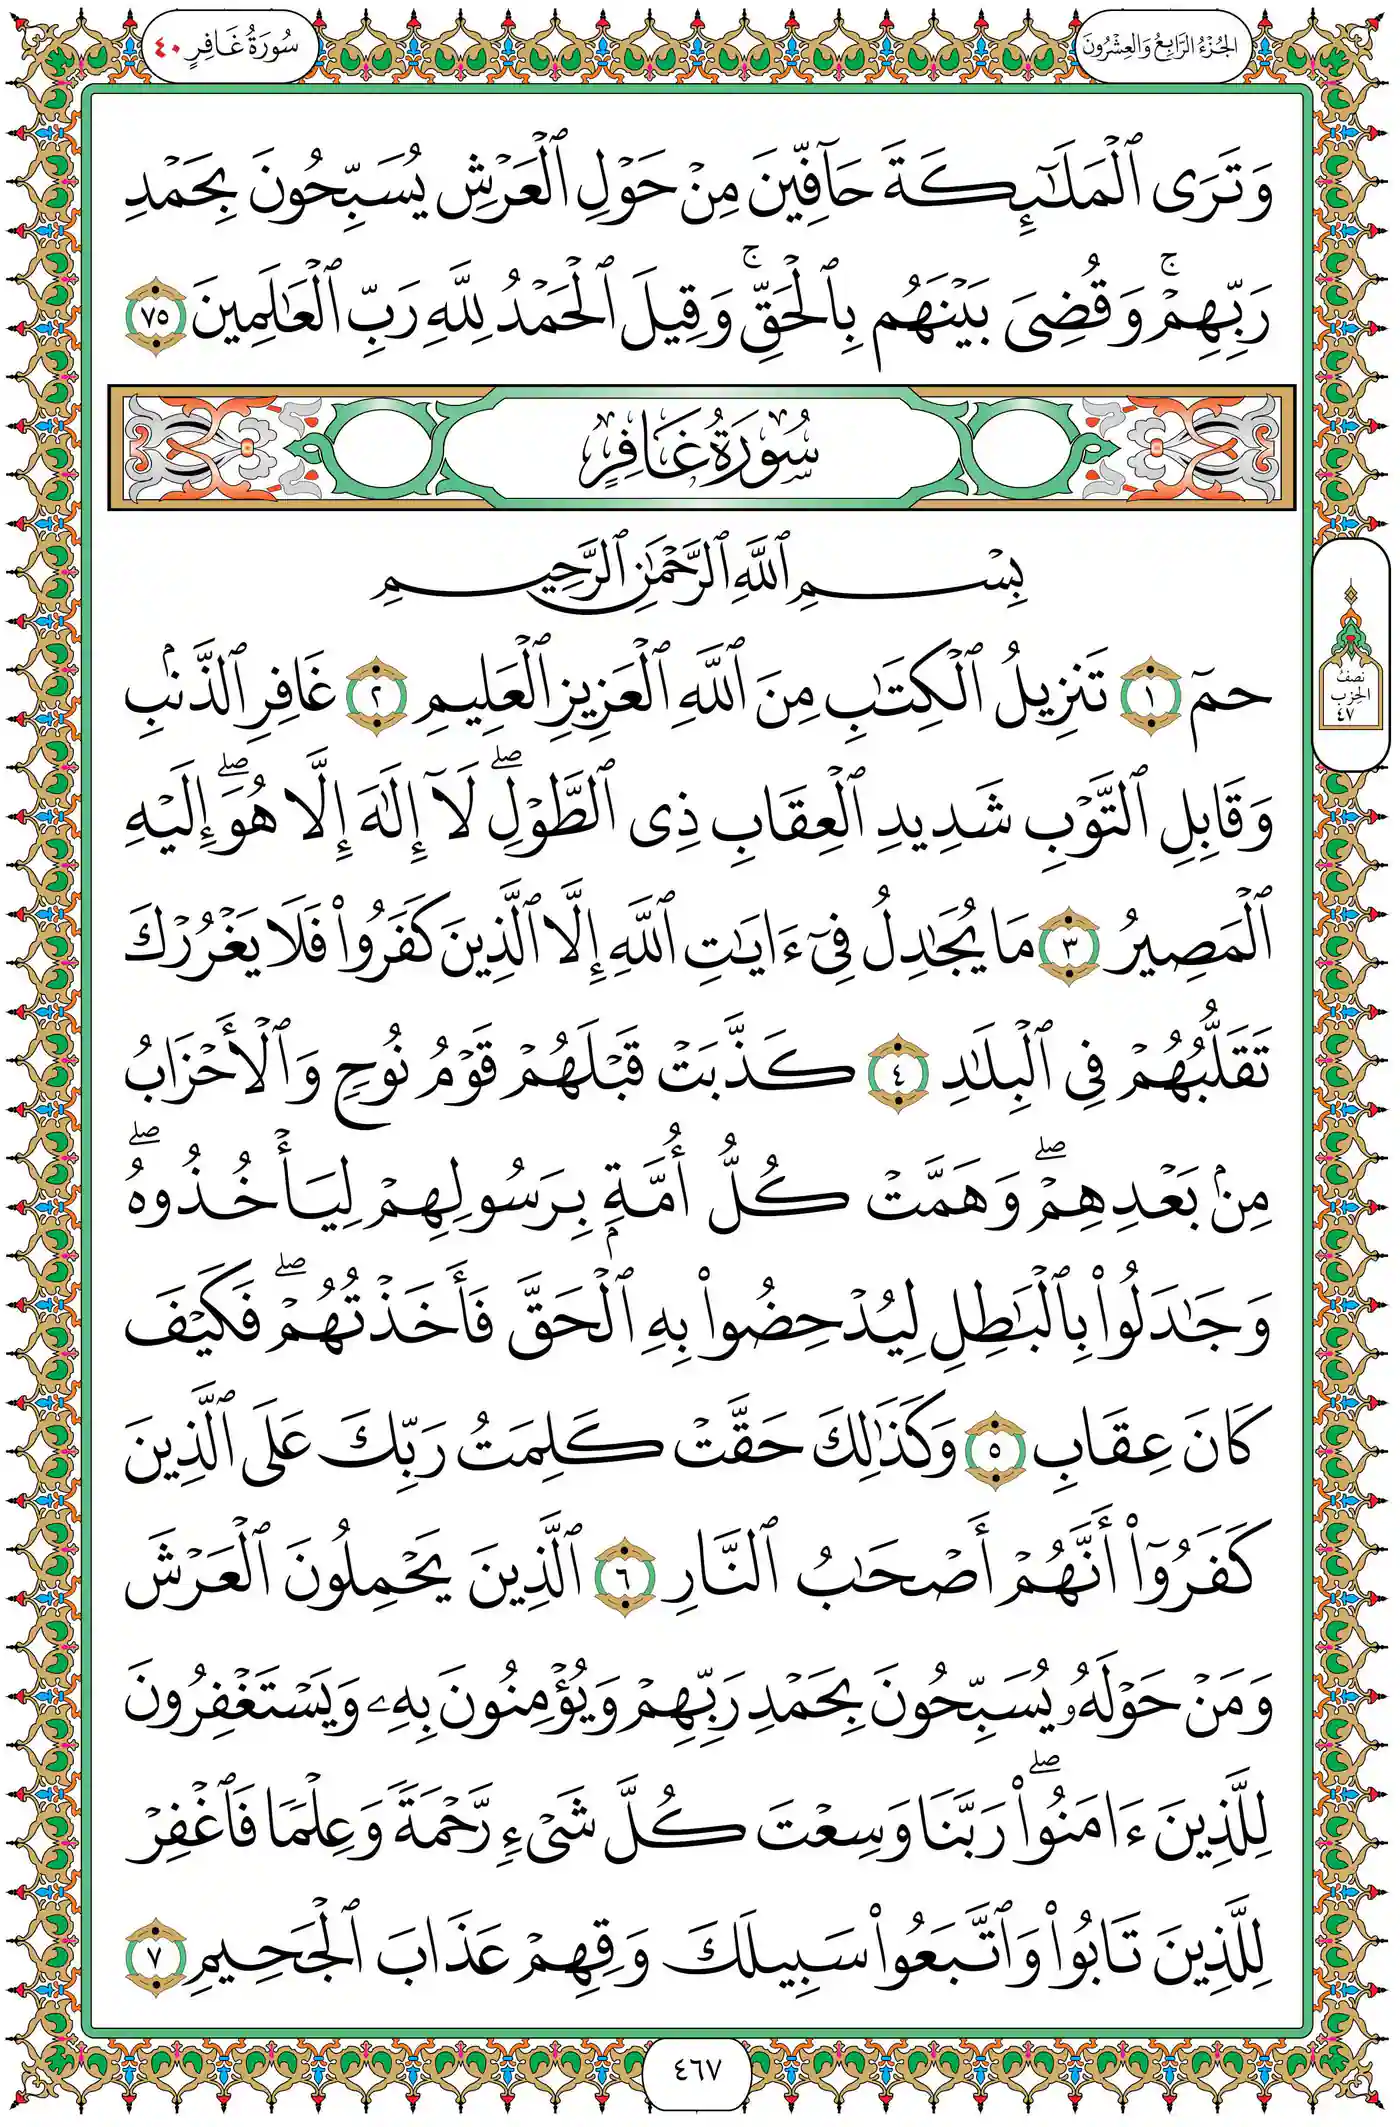 الجُزْءُ الرَّابِعُ وَالعِشْرُونَ
سُورَةُ غَافِرٍ ٤٠
وَتَرَى ٱلْمَلَـٰٓئِكَةَ حَآفِّينَ مِنْ حَوْلِ ٱلْعَرْشِ يُسَبِّحُونَ بِحَمْدِ
رَبِّهِمْۚ وَقُضِىَ بَيْنَهُم بِٱلْحَقِّۚ وَقِيلَ ٱلْحَمْدُ لِلَّهِ رَبِّ ٱلْعَـٰلَمِينَ ٧٥
سُورَةُ غَافِرٍ
بِسْمِ ٱللَّهِ ٱلرَّحْمَـٰنِ ٱلرَّحِيمِ
حمٓ ١ تَنزِيلُ ٱلْكِتَـٰبِ مِنَ ٱللَّهِ ٱلْعَزِيزِ ٱلْعَلِيمِ ٢ غَافِرِ ٱلذَّنۢبِ
وَقَابِلِ ٱلتَّوْبِ شَدِيدِ ٱلْعِقَابِ ذِى ٱلطَّوْلِۖ لَآ إِلَـٰهَ إِلَّا هُوَۖ إِلَيْهِ
ٱلْمَصِيرُ ٣ مَا يُجَـٰدِلُ فِىٓ ءَايَـٰتِ ٱللَّهِ إِلَّا ٱلَّذِينَ كَفَرُوا۟ فَلَا يَغْرُرْكَ
تَقَلُّبُهُمْ فِى ٱلْبِلَـٰدِ ٤ كَذَّبَتْ قَبْلَهُمْ قَوْمُ نُوحٍ وَٱلْأَحْزَابُ
مِنۢ بَعْدِهِمْۖ وَهَمَّتْ كُلُّ أُمَّةٍۭ بِرَسُولِهِمْ لِيَأْخُذُوهُۖ
وَجَـٰدَلُوا۟ بِٱلْبَـٰطِلِ لِيُدْحِضُوا۟ بِهِ ٱلْحَقَّ فَأَخَذْتُهُمْۖ فَكَيْفَ
كَانَ عِقَابِ ٥ وَكَذَٰلِكَ حَقَّتْ كَلِمَتُ رَبِّكَ عَلَى ٱلَّذِينَ
كَفَرُوٓا۟ أَنَّهُمْ أَصْحَـٰبُ ٱلنَّارِ ٦ ٱلَّذِينَ يَحْمِلُونَ ٱلْعَرْشَ
وَمَنْ حَوْلَهُۥ يُسَبِّحُونَ بِحَمْدِ رَبِّهِمْ وَيُؤْمِنُونَ بِهِۦ وَيَسْتَغْفِرُونَ
لِلَّذِينَ ءَامَنُوا۟ۖ رَبَّنَا وَسِعْتَ كُلَّ شَىْءٍ رَّحْمَةً وَعِلْمًا فَٱغْفِرْ
لِلَّذِينَ تَابُوا۟ وَٱتَّبَعُوا۟ سَبِيلَكَ وَقِهِمْ عَذَابَ ٱلْجَحِيمِ ٧
نِصْفُ
الحِزْبِ
٤٧
٤٦٧